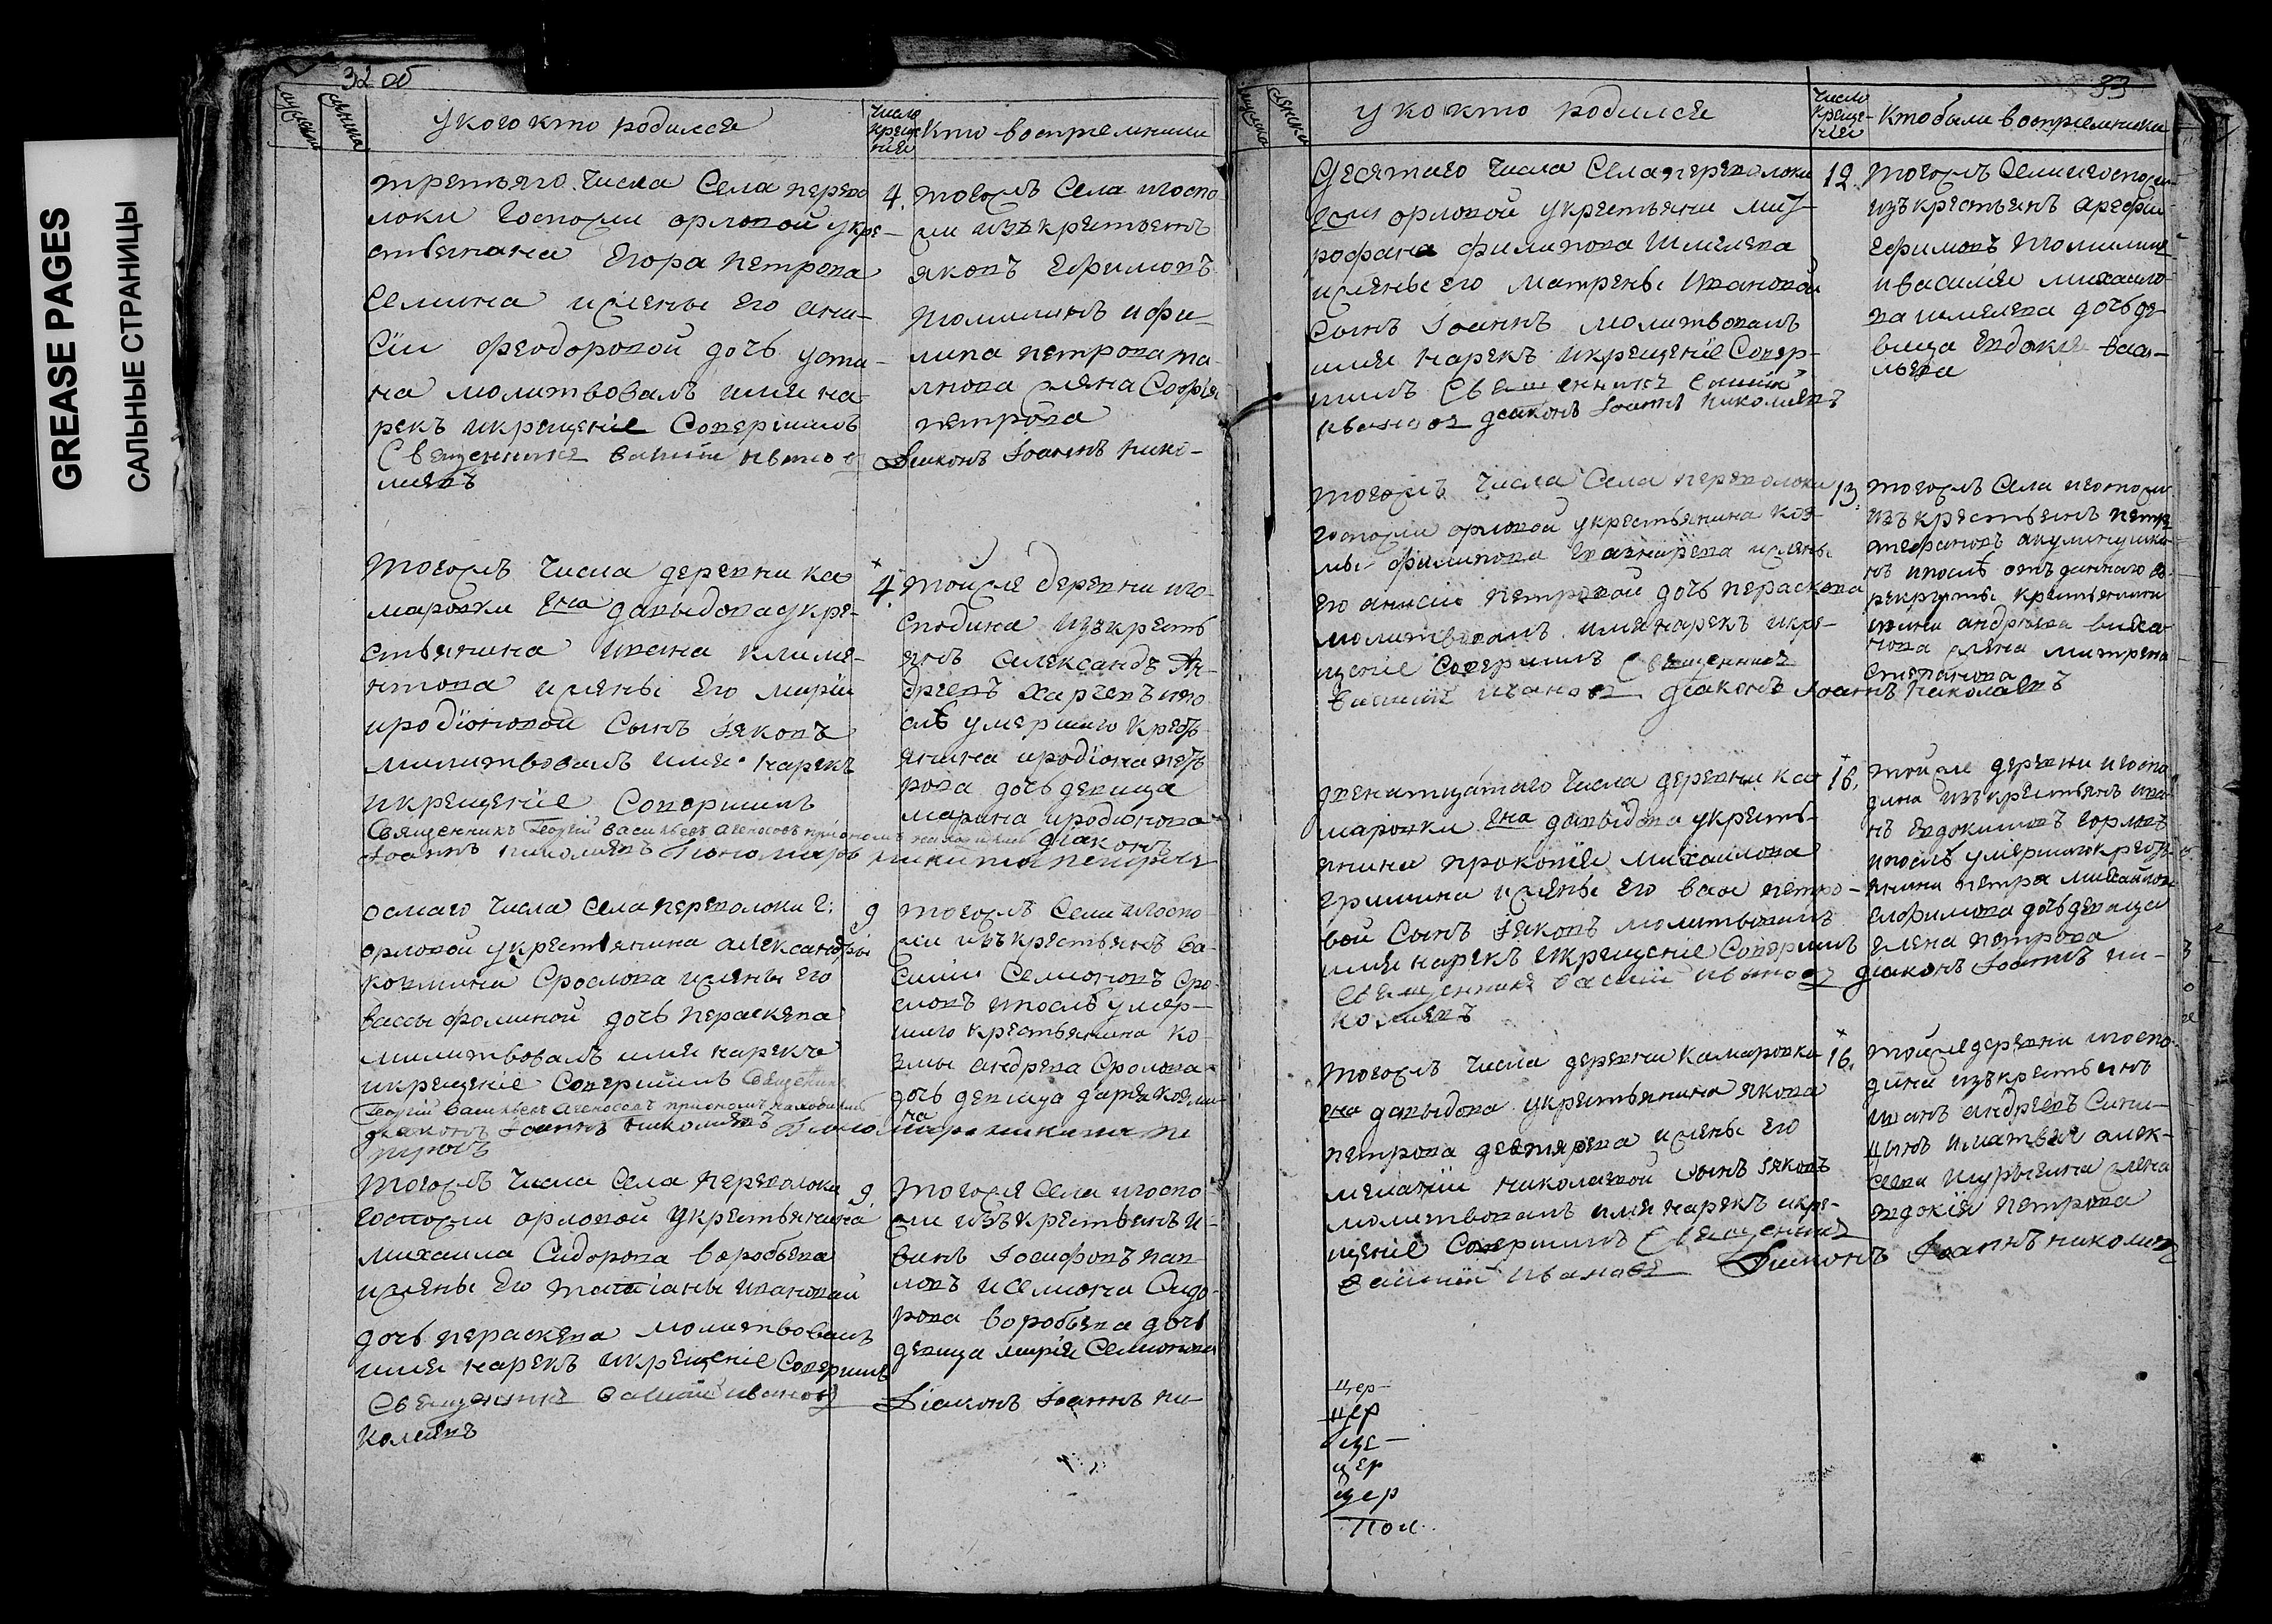 GREASE PAGES
САЛЬНЫЕ СТРАНИЦЫ
32 об
у кого кто родился
число крещения
кто восприемники
третьяго числа села перево
4.
локи Госпожи орловой укре-
стьянина Егора петрова
Семина и жены его ани-
сіи феодоровой дочь усти-
на молитвовалъ имя на-
рекъ и крещеніе Совершилъ
Священникъ
тогожъ Села и госпо
жи изъ крестьянъ
яковъ Ефимовъ
Томилинъ и фи-
липа петрова
жена Софія
петрова
Діаконъ Іоаннъ нико-
лаевъ
тогожъ числа деревни ка
4.
маровки Ена давыдова укре-
стьянина ивана климе-
нтова и жены Его маріи
иродіоновой Сынъ Іяковъ
молитвовалъ имя нарекъ
и крещеніе Совершилъ
Священникъ Георгій Васильевъ
діаконъ
Іоаннъ николаевъ Пономарь никита петровъ
тойже деревни и го-
сподина изъ кресть
янъ Александъ Ан-
дреевъ харчевъ и по
слѣ умершаго крест
янина иродіона пет
рова дочь девица
марина иродіонова
осмаго числа села переволоки Г:
9
орловой укрестьянина александры
козмина Фролова и жены его
вассы фоминой дочь параскева
молитвовалъ имя нарекъ
и крещеніе Совершилъ Священникъ
Георгій Васильевъ
діаконъ Іоаннъ николаевъ
тогожъ Села и госпо
жи изъ крестьянъ ва-
силій Семионовъ Фро-
ловъ и послѣ умер-
шаго крестьянина ко-
змы андреева Фролова
дочь девица дарья козми-
на
тогожъ числа села переволоки
9
госпожи орловой укрестьянина
михаила Сидорова воробьева
и жены Его татіаны ивановой
дочь параскева молитвовалъ
имя нарекъ и крещеніе Совершилъ
Священникъ Василій Ивановъ
тогоже села и госпо
жи изъ крестьянъ и-
ванъ Іосифовъ пав
ловъ и Семиона Сидо-
рова воробьева дочь
девица марія Семионова
Діаконъ Іоаннъ ни-
колаевъ
33
у ко кто родился
число крещения
кто были восприемники
Десятаго числа Села переволоки
12.
гсжи орловой укрестьяни мит
рофана филипова Шмелева
и жены его матрены ивановой
Сынъ Іоаннъ молитвовалъ
имя нарекъ и крещеніе Совер-
шилъ Священникъ Василій
Ивановъ діаконъ Іоаннъ николаевъ
тогожъ села и госпожи
изъ крестьянъ арефій
Ефимовъ Томилинъ
и василія михаило-
ва шмелева дочь де-
вица Евдокія васи-
льева
тогожъ числа Села переволоки
13.
госпожи орловой укрестьянина коз-
мы филипова и жены
его анисіи петровой дочь параскева
молитвовалъ имя нарекъ и кре-
щеніе Совершилъ Священникъ
Василій Ивановъ діаконъ Іоаннъ николаевъ
тогожъ села и госпожи
изъ крестьянъ петръ
и послѣ отъданнаго въ
рекруты крестьянина
жена матрена
Степанова
двенатцатаго числа деревни ка
16.
маровки Ена давыдова укресть-
янина прокопія михаилова
гришина и жены Его васы петро-
вой Сынъ Іяковъ молитвовалъ
имя нарекъ и крещеніе Совершилъ
Священникъ Василій Ивановъ діаконъ Іоаннъ ни-
колаевъ
тойже деревни и госпо
дина изъ крестьянъ ива-
нъ Евдокимовъ Горловъ
и послѣ умершаго крест
янина петра михаилова
дочь девица
Елена петрова
тогожъ числа деревни камаровки
16.
ена давыдова укрестьянина якова
петрова дегтярева и жены его
меланіи николаевой Сынъ Іяковъ
молитвовалъ имя нарекъ и кре-
щеніе Совершилъ Священникъ
Василій Ивановъ Діаконъ Іоаннъ николаевъ
тойже деревни и госпо-
дина изъ крестьянъ
иванъ андреевъ Сини-
цынъ и матвея алек-
сеева жена
евдокія петрова
цер
цер
це
цер
цер
Пол.